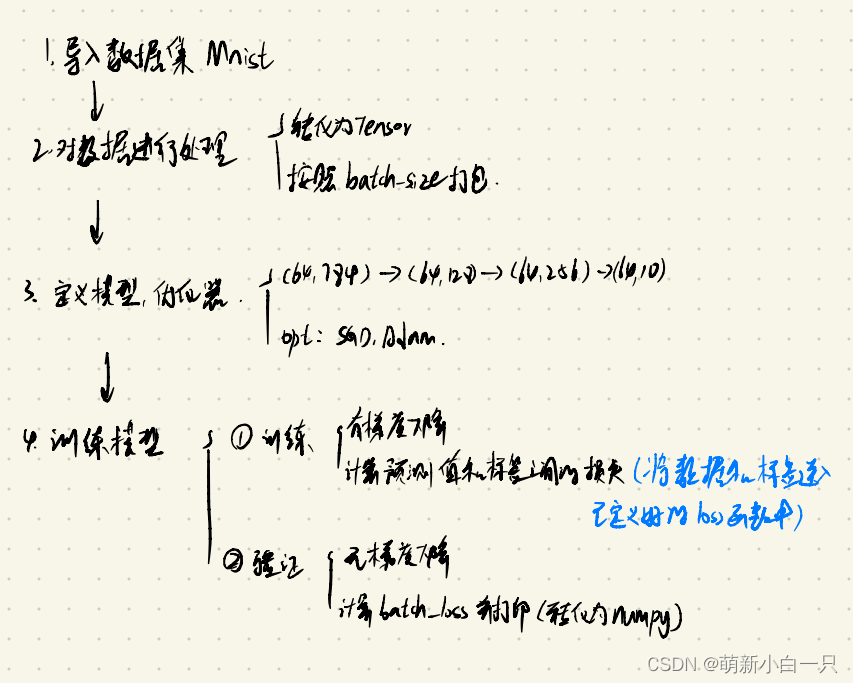 1.导入数据集 Mnist
2.对数据进行处理
转化为Tensor
按照 batch-size打包.
3. 定义模型,优化器.
(64,784)→(64,128)→(64,256)→(64,10)
opt: SGD, Adam.
4. 训练模型
① 训练、
有梯度下降
计算预测值和标签之间的损失(将数据和标签送入
已定义好的loss函数中)
② 验证
无梯度下降
计算batch_loss 并打印(转化为numpy)
CSDN @萌新小白一只